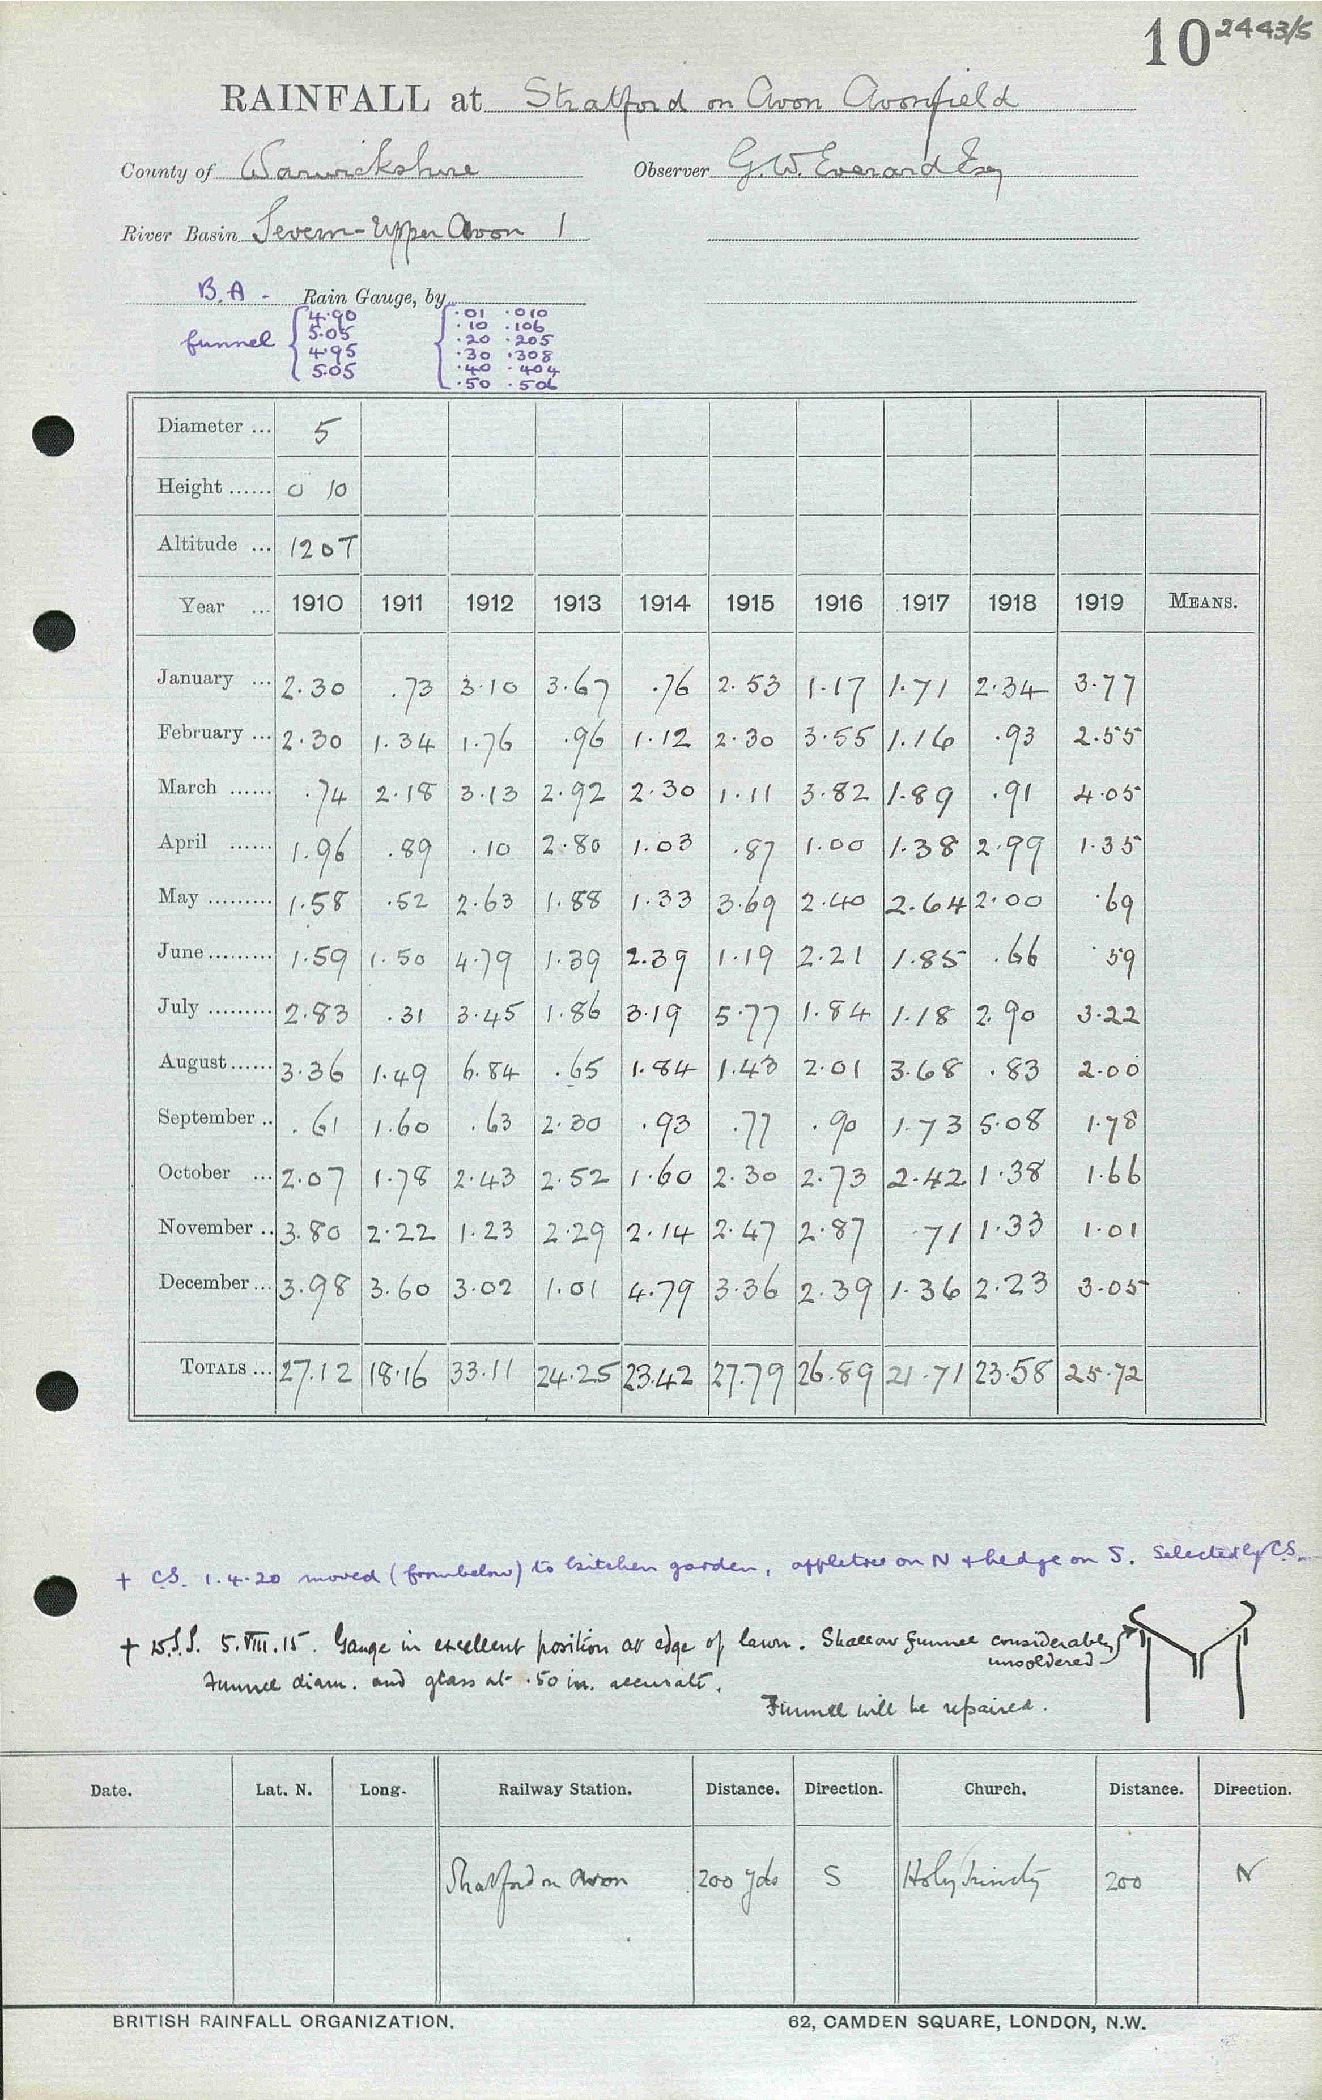 10 2443/5
RAINFALL at Stratford on Avon Avonfield
County of Warwickshire Observer G.W. Everard Esq
River Basin Severn-Upper Avon 1
B.A. Rain Gauge, by
funnel { 4.90 { .01 .010
5.05 .10 .106
4.95 .20 .205
5.05 .30 .308
.40 .404
.50 .506
Diameter ... 5
Height ...... 0 10
Altitude ... 120T
Year ... 1910 1911 1912 1913 1914 1915 1916 1917 1918 1919 MEANS.
January ... 2.30 .73 3.10 3.67 .76 2.53 1.17 1.71 2.34 3.77
February ... 2.30 1.34 1.76 .96 1.12 2.30 3.55 1.16 .93 2.55
March ...... .74 2.18 3.13 2.92 2.30 1.11 3.82 1.89 .91 4.05
April ...... 1.96 .89 .10 2.80 1.03 .87 1.00 1.38 2.99 1.35
May ......... 1.58 .52 2.63 1.88 1.33 3.69 2.40 2.64 2.00 .69
June ......... 1.59 1.50 4.79 1.39 2.39 1.19 2.21 1.85 .66 59
July ......... 2.83 .31 3.45 1.86 3.19 5.77 1.84 1.18 2.90 3.22
August ...... 3.36 1.49 6.84 .65 1.84 1.43 2.01 3.68 .83 2.00
September .. .61 1.60 .63 2.30 .93 .77 .90 1.73 5.08 1.78
October ... 2.07 1.78 2.43 2.52 1.60 2.30 2.73 2.42 1.38 1.66
November .. 3.80 2.22 1.23 2.29 2.14 2.47 2.87 .71 1.33 1.01
December ... 3.98 3.60 3.02 1.01 4.79 3.36 2.39 1.36 2.23 3.05
TOTALS ... 27.12 18.16 33.11 24.25 23.42 27.79 26.89 21.71 23.58 25.72
+ C.S. 1.4.20 moved (from below) to kitchen garden, appletree on N + hedge on S. Selected by C.S.
+ 5.VIII.15. Gauge in excellent position at edge of lawn. Shallow funnel considerably
unsoldered
Funnel diam. and glass at .50 in. accurate.
Funnel will be repaired.
Date. Lat. N. Long. Railway Station. Distance. Direction. Church. Distance. Direction.
Stratford on Avon 200 yds S Holy Trinity 200 N
BRITISH RAINFALL ORGANIZATION. 62, CAMDEN SQUARE, LONDON, N.W.